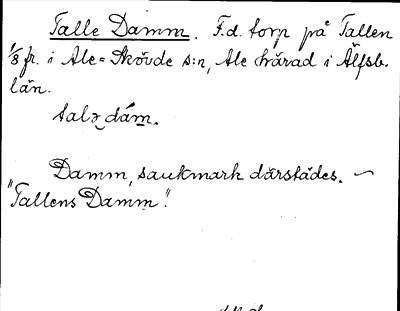 Talle Damm. F.d. torp på Tallen
1/8 fr. i Ale=Skövde s:n, Ale härad i Älfsb.
län.
talə dám.
Damm, sankmark därstädes. ~
"Tallens Damm".